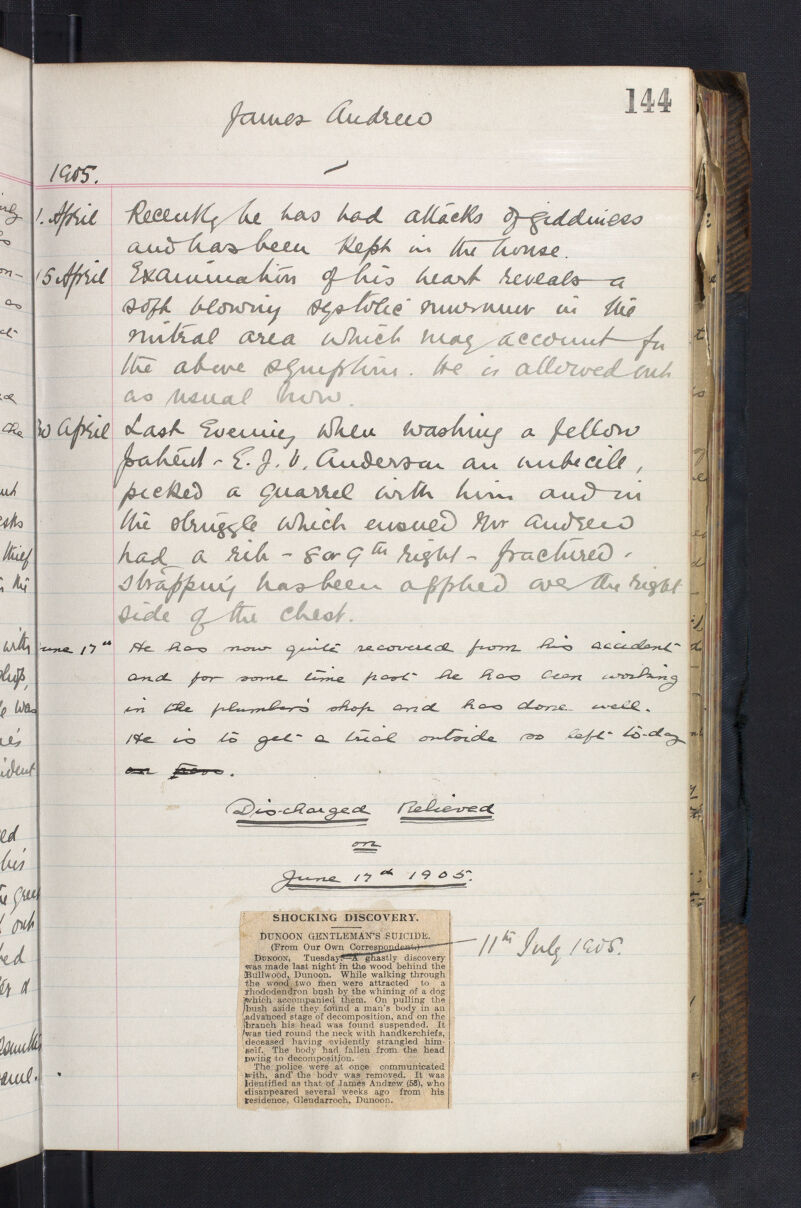 144
James Andrew
1905.
1. April Recently he has had attacks of giddiness
and has been kept in the house.
15 April Examination of his heart reveals a
soft blowing systolic murmur in the
mitral area which may account for
the above symptom. He is allowed out
as usual now.
30 April Last Evening when washing a fellow
patient - E. J. V. Anderson an imbecile,
picked a quarrel with him and in
the struggle which ensued Mr Andrew
had a rib - 8 or 9th right - fractured.
Strapping has been applied over the right
side of the chest.
June 17th He has now quite recovered from his accident
and for some time past he has been working
in the plumber's shop and has done well.
He is to get a trial outside so left to-day
on
Discharged Relieved
on
June 17th 1905.
SHOCKING DISCOVERY.
DUNOON GENTLEMAN'S SUICIDE.
(From Our Own Correspondent.)
11th July 1905.
DUNOON, Tuesday.—A ghastly discovery
was made last night in the wood behind the
Bullwood, Dunoon. While walking through
the wood two men were attracted to a
rhododendron bush by the whining of a dog
which accompanied them. On pulling the
bush aside they found a man's body in an
advanced stage of decomposition, and on the
branch his head was found suspended. It
was tied round the neck with handkerchiefs,
deceased having evidently strangled him-
self. The body had fallen from the head
owing to decomposition.
The police were at once communicated
with, and the body was removed. It was
identified as that of James Andrew (58), who
disappeared several weeks ago from his
residence, Glendarroch, Dunoon.